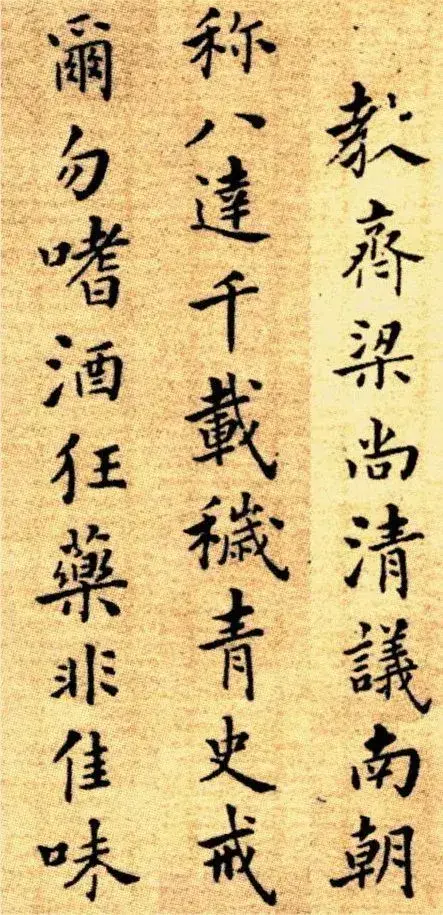 教齊梁尚清議南朝
称八達千載穢青史戒
爾勿嗜酒狂藥非佳味